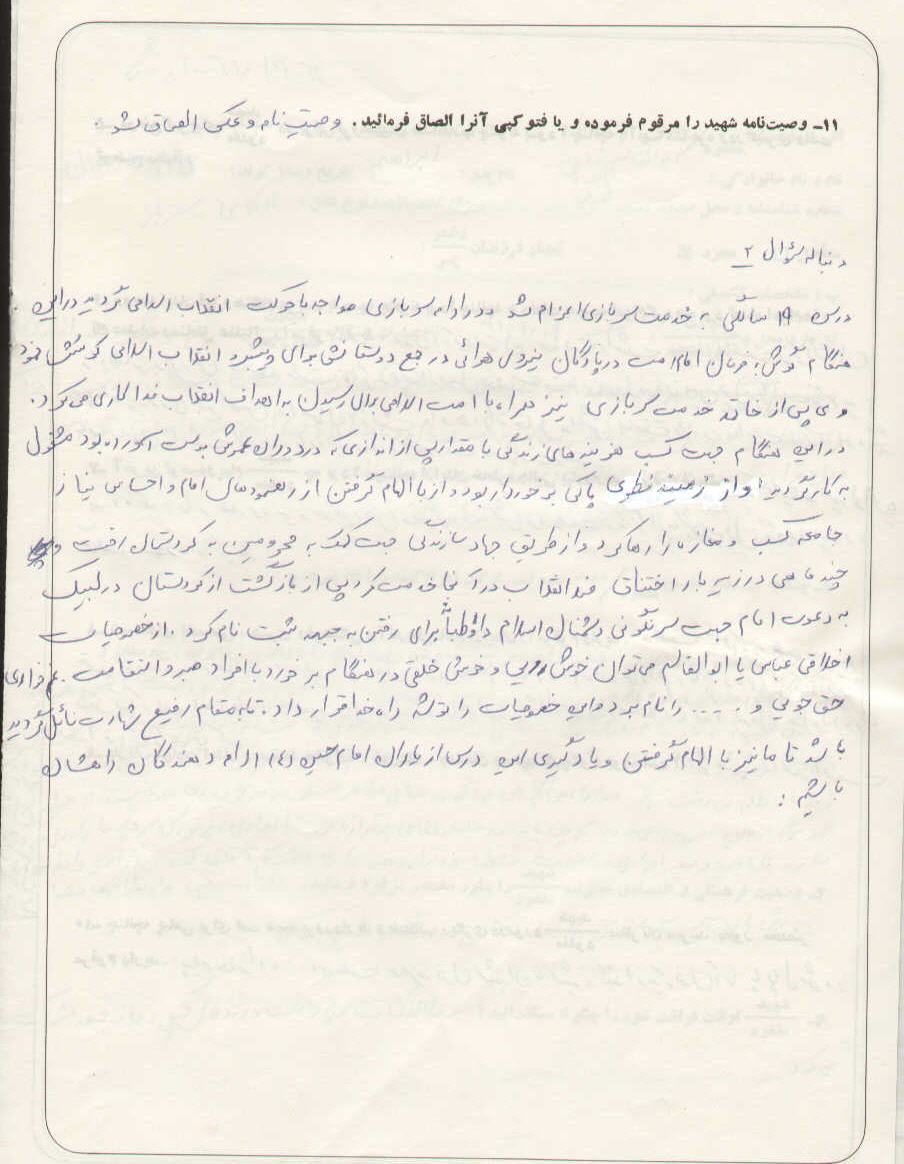 ۱۱- وصیت‌نامه شهید را مرقوم فرموده و یا فتوکپی آنرا الصاق فرمائید. وصیت نام و عکس الصاق شد.
دنباله سؤال ۲
درسن ۱۹ سالگی به خدمت سربازی اعزام شد و در ادامه سربازی مواجه با حرکت انقلاب اسلامی گردید در این
هنگام گوش به فرمان امام امت در پادگان نیروی هوائی در جمع دوستانش برای پیشبرد انقلاب اسلامی کوشش نمود
و ی پس از خاتمه خدمت سربازی نیز همراه با امت اسلامی برای رسیدن به اهداف انقلاب فداکاری می کرد.
در این هنگام جهت کسب هزینه های زندگی با مقدار پس اندازی که در دوران عمرش بدست آورده بود مشغول
به کار گردید او از زمینه فطری پاکی برخوردار بود و از با الهام گرفتن از رهنمودهای امام و احساس نیاز
جامعه کسب و مغازه را رها کرد و از طریق جهاد سازندگی جهت کمک به محرومین به کردستان رفت و
چند ماهی در زیر بار اختناق ضد انقلاب در آنجا خدمت کرد پس از بازگشت از کردستان در لبیک
به دعوت امام جهت سرنگونی دشمنان اسلام داوطلبانه برای رفتن به جبهه ثبت نام کرد. از خصوصیات
اخلاقی عباس یا ابوالقاسم می توان خوش رویی و خوش خلقی در هنگام برخورد با افراد صبر و استقامت.
حق جویی و ..... را نام برد و این خصوصیات را توشه راه خدا قرار داد. تا به مقام رفیع شهادت نائل گردید
باشد تا ما نیز با الهام گرفتن و یادگیری این درس از یاران امام حسین (ع) ادامه دهندگان راهشان
باشیم: